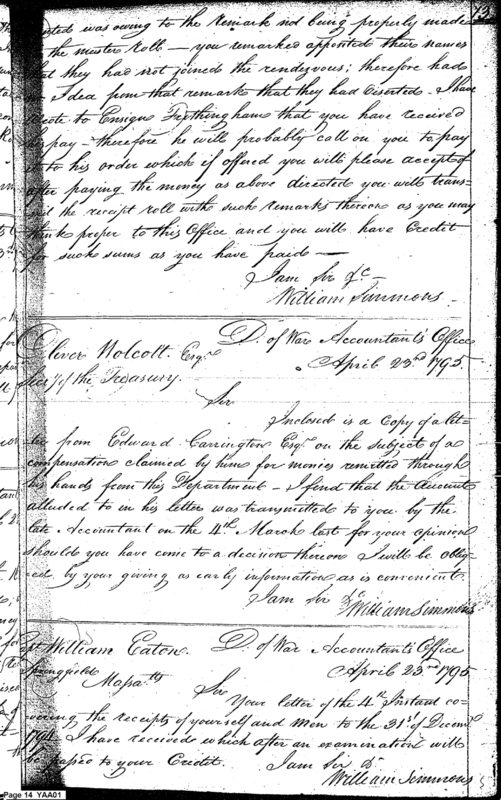 13
was owing to the remark not being properly made
the muster Roll — you remarked opposite their names
that they had not joined the rendezvous; therefore had
Idea from that remark that they had deserted. I have
wrote to Ensign Frothingham that you have received
his pay — therefore he will probably call on you to pay
to his order which if offered you will please accept of
after paying the money as above directed you will trans=
mit the receipt roll with such remarks thereon as you may
think proper to this Office and you will have Credit
for such sums as you have paid —
I am Sir &c —
William Simmons.
D. of War Accountant's Office
Oliver Wolcott Esqr.
April 23d 1795.
Secy. of the Treasury.
Sir
Inclosed is a Copy of a let=
ter from Edward Carrington Esqr. on the subject of a
compensation claimed by him for monies remitted through
his hands from this Department — I find that the Account
alluded to in his letter was transmitted to you by the
late Accountant on the 4th. March last for your opinion
should you have come to a decision thereon I will be oblig=
ed by your giving as early information as is convenient.
I am Sir &c
William Simmons
Capt William Eaton
D. of War Accountant's Office
Springfield
April 23rd 1795
Massts
Sir
Your letter of the 4th Instant co=
vering the receipts of yourself and Men to the 31st of Decemr
1794 I have received which after an examination will
be passed to your Credit. I am Sir &
William Simmons
Page 14 YAA01